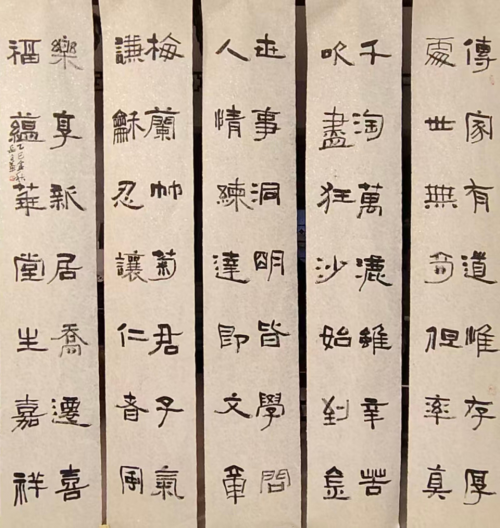 傳家有道惟存厚
處世無奇但率真
千淘萬漉雖辛苦
吹盡狂沙始到金
世事洞明皆學問
人情練達即文章
梅蘭竹菊君子氣
謙龢忍讓仁者風
樂享新居喬遷喜
福蘊華堂生嘉祥
乙巳